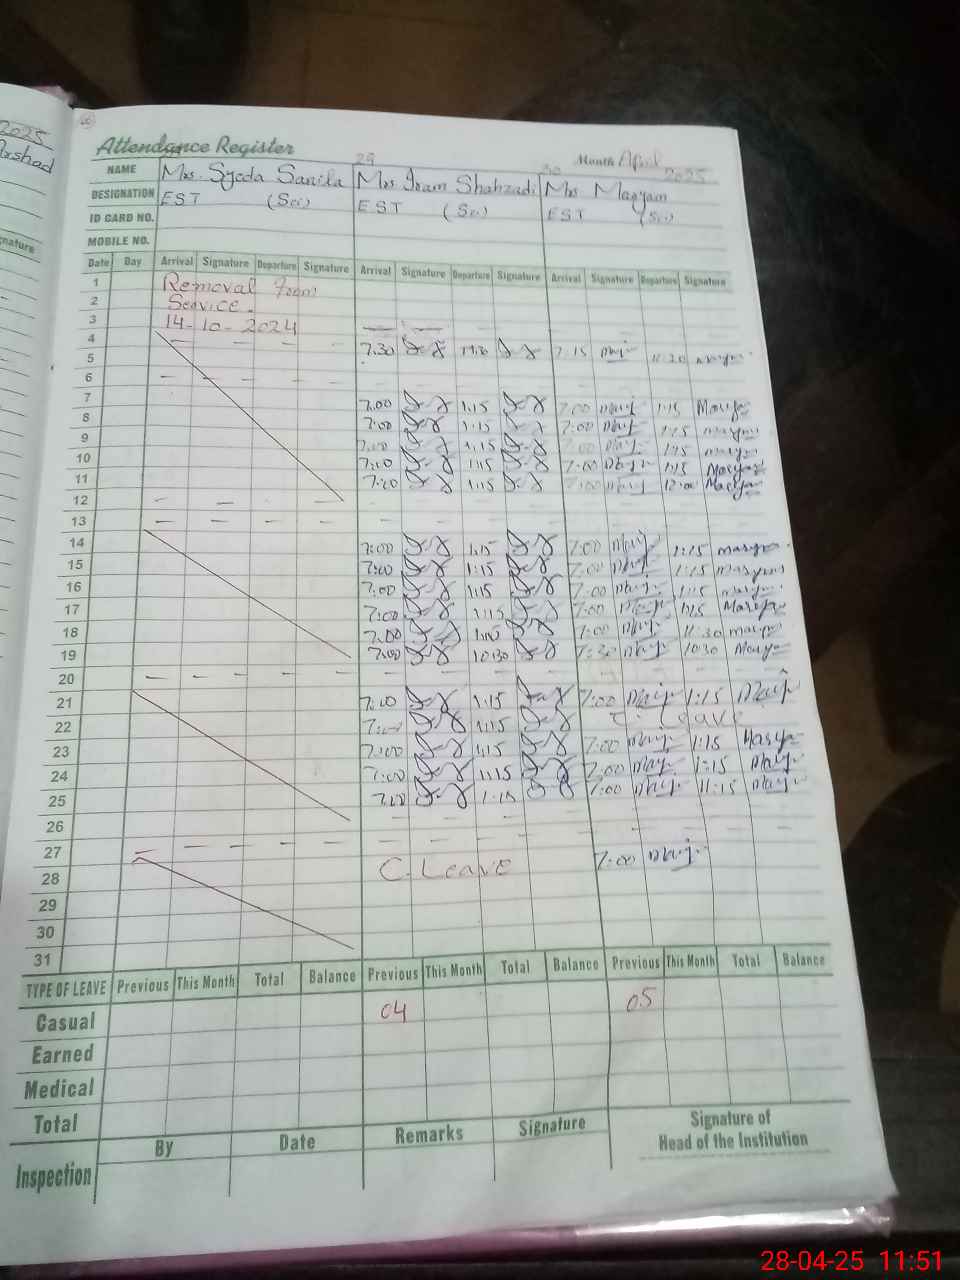 2025
Arshad
nature
Attendance Register
29
30
Month April 2025
NAME Mrs. Syeda Sanila Mrs Iram Shahzadi Mrs Maryam
DESIGNATION EST (Sci) EST (Sci) EST (Sci)
ID CARD NO.
MOBILE NO.
Date Day Arrival Signature Departure Signature Arrival Signature Departure Signature Arrival Signature Departure Signature
1 Removal from
2 Service.
3 14-10-2024 — —
4 — — — —
5 7.30 11.30 7.15 11:30
6 — — — —
7 7.00 1.15 7:00 1:15
8 7:00 1:15 7:00 1:15
9 7:00 1.15 7:00 1:15
10 7:00 1:15 7:00 1:15
11 7:00 1:15 7:00 12:00
12 — — — —
13 — — — —
14 7:00 1:15 7:00 1:15
15 7:00 1:15 7:00 1:15
16 7:00 1:15 7:00 1:15
17 7:00 1:15 7:00 1:15
18 7:00 7:00 11:30
19 7:00 10:30 7:30 10:30
20 — — — —
21 7:00 1:15 7:00 1:15
22 7:00 1:15 C. Leave
23 7:00 1:15 7:00 1:15
24 7:00 1:15 7:00 1:15
25 7:00 1:15 7:00 11:15
26
27 — — — —
28 C. Leave 7:00
29
30
31
TYPE OF LEAVE Previous This Month Total Balance Previous This Month Total Balance Previous This Month Total Balance
Casual 04 05
Earned
Medical
Total
Inspection By Date Remarks Signature Signature of
Head of the Institution
28-04-25 11:51